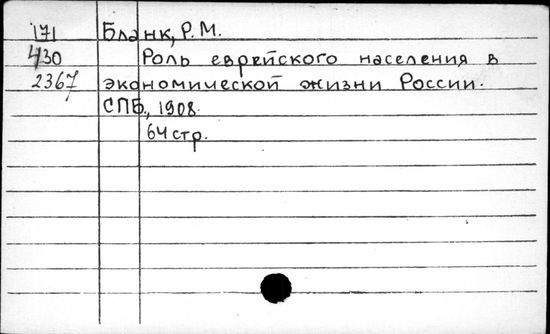 171 Бланк, Р.М.
430 Роль еврейского населения в
2367 экономической жизни России.
СПБ., 1908.
64 стр.